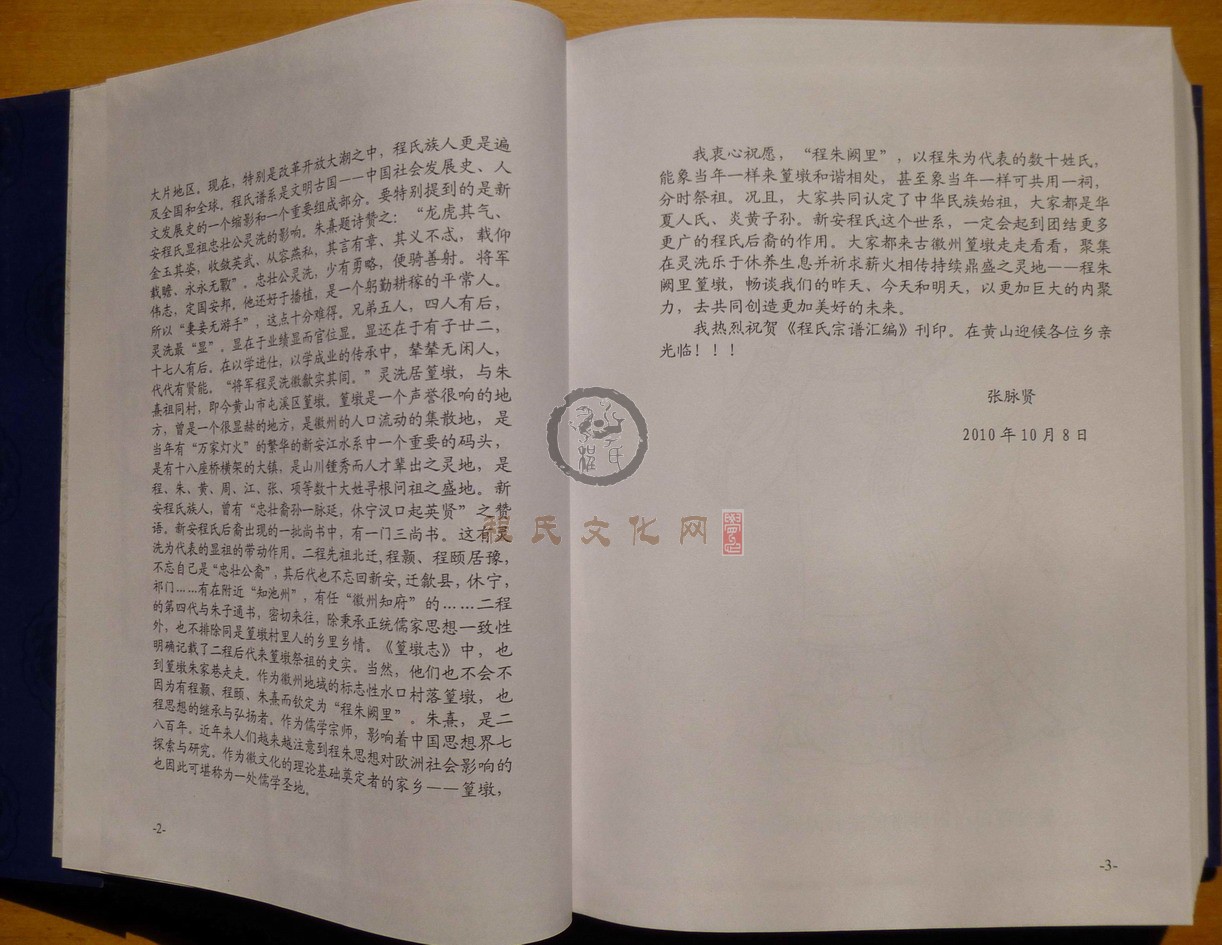 大片地区。现在，特别是改革开放大潮之中，程氏族人更是遍
及全国和全球。程氏谱系是文明古国——中国社会发展史、人
文发展史的一个缩影和一个重要组成部分。要特别提到的是新
安程氏显祖忠壮公灵洗的影响。朱熹题诗赞之：“龙虎其气、
金玉其姿，收敛英武、从容燕私，其言有章、其义不忒，载仰
载瞻、永永无斁”。忠壮公灵洗，少有勇略，便骑善射。将军
伟志，定国安邦。他还好于播植，是一个躬勤耕稼的平常人。
所以“妻妾无游手”，这点十分难得。兄弟五人，四人有后，
灵洗最“显”。显在于业绩显而官位显。显还在于有子廿二，
十七人有后。在以学进仕，以学成业的传承中，辈辈无闲人，
代代有贤能。“将军程灵洗徽歙实其间。”灵洗居篁墩，与朱
熹祖同村，即今黄山市屯溪区篁墩。篁墩是一个声誉很响的地
方，曾是一个很显赫的地方，是徽州的人口流动的集散地，是
当年有“万家灯火”的繁华的新安江水系中一个重要的码头，
是有十八座桥横架的大镇，是山川锺秀而人才辈出之灵地，是
程、朱、黄、周、江、张、项等数十大姓寻根问祖之盛地。新
安程氏族人，曾有“忠壮裔孙一脉延，休宁汊口起英贤”之赞
语。新安程氏后裔出现的一批尚书中，有一门三尚书。这有灵
洗为代表的显祖的带动作用。二程先祖北迁，程颢、程颐居豫，
不忘自己是“忠壮公裔”，其后代也不忘回新安，迁歙县，休宁，
祁门……有在附近“知池州”，有任“徽州知府”的……二程
的第四代与朱子通书，密切来往，除秉承正统儒家思想一致性
外，也不排除同是篁墩村里人的乡里乡情。《篁墩志》中，也
明确记载了二程后代来篁墩祭祖的史实。当然，他们也不会不
到篁墩朱家巷走走。作为徽州地域的标志性水口村落篁墩，也
因为有程颢、程颐、朱熹而钦定为“程朱阙里”。朱熹，是二
程思想的继承与弘扬者。作为儒学宗师，影响着中国思想界七
八百年。近年来人们越来越注意到程朱思想对欧洲社会影响的
探索与研究。作为徽文化的理论基础奠定者的家乡——篁墩，
也因此可堪称为一处儒学圣地。
-2-
我衷心祝愿，“程朱阙里”，以程朱为代表的数十姓氏，
能象当年一样来篁墩和谐相处，甚至象当年一样可共用一祠，
分时祭祖。况且，大家共同认定了中华民族始祖，大家都是华
夏人氏、炎黄子孙。新安程氏这个世系，一定会起到团结更多
更广的程氏后裔的作用。大家都来古徽州篁墩走走看看，聚集
在灵洗乐于休养生息并祈求薪火相传持续鼎盛之灵地——程朱
阙里篁墩，畅谈我们的昨天、今天和明天，以更加巨大的内聚
力，去共同创造更加美好的未来。
我热烈祝贺《程氏宗谱汇编》刊印。在黄山迎候各位乡亲
光临！！！
张脉贤
2010年10月8日
-3-
程氏文化网